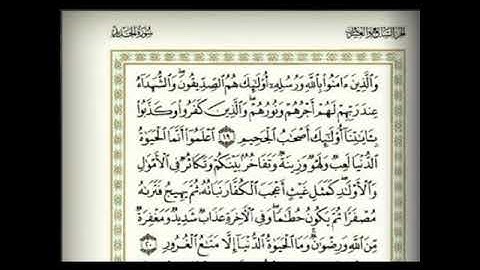 سورة الحديد
الجزء السابع والعشرون
وَالَّذِينَ ءَامَنُوا۟ بِٱللَّهِ وَرُسُلِهِۦٓ أُو۟لَٰٓئِكَ هُمُ ٱلصِّدِّيقُونَ ۖ وَٱلشُّهَدَآءُ
عِندَ رَبِّهِمْ لَهُمْ أَجْرُهُمْ وَنُورُهُمْ ۖ وَٱلَّذِينَ كَفَرُوا۟ وَكَذَّبُوا۟
بِـَٔايَٰتِنَآ أُو۟لَٰٓئِكَ أَصْحَٰبُ ٱلْجَحِيمِ ١٩ ٱعْلَمُوٓا۟ أَنَّمَا ٱلْحَيَوٰةُ
ٱلدُّنْيَا لَعِبٌ وَلَهْوٌ وَزِينَةٌ وَتَفَاخُرٌۢ بَيْنَكُمْ وَتَكَاثُرٌ فِى ٱلْأَمْوَٰلِ
وَٱلْأَوْلَٰدِ ۖ كَمَثَلِ غَيْثٍ أَعْجَبَ ٱلْكُفَّارَ نَبَاتُهُۥ ثُمَّ يَهِيجُ فَتَرَىٰهُ
مُصْفَرًّا ثُمَّ يَكُونُ حُطَٰمًا ۖ وَفِى ٱلْءَاخِرَةِ عَذَابٌ شَدِيدٌ وَمَغْفِرَةٌ
مِّنَ ٱللَّهِ وَرِضْوَٰنٌ ۚ وَمَا ٱلْحَيَوٰةُ ٱلدُّنْيَآ إِلَّا مَتَٰعُ ٱلْغُرُورِ ٢٠